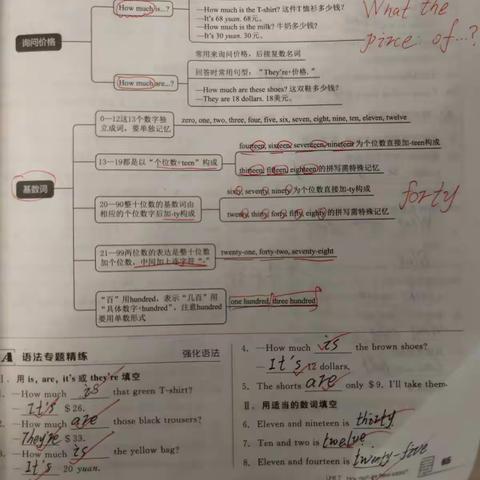 How much is...?
—How much is the T-shirt? 这件T恤衫多少钱?
—It's 68 yuan. 68元。
—How much is the milk? 牛奶多少钱?
—It's 30 yuan. 30元。
What the
pirce of...?
询问价格
常用来询问价格,后接复数名词
回答时常用句型:"They're+价格."
How much are...?
—How much are these shoes? 这双鞋多少钱?
—They are 18 dollars. 18美元。
0—12这13个数字独
立成词,要单独记忆
zero, one, two, three, four, five, six, seven, eight, nine, ten, eleven, twelve
fourteen, sixteen, seventeen, nineteen为个位数直接加-teen构成
13—19都是以"个位数+teen"构成
thirteen, fifteen, eighteen的拼写需特殊记忆
基数词
sixty, seventy, ninety为个位数直接加-ty构成
20—90整十位数的基数词由
相应的个位数字后加-ty构成
twenty, thirty, forty, fifty, eighty的拼写需特殊记忆
forty
21—99两位数的表达是整十位数
加个位数,中间加上连字符"-"
twenty-one, forty-two, seventy-eight
"百"用hundred,表示"几百"用
"具体数字+hundred",注意hundred
要用单数形式
one hundred, three hundred
A 语法专题精练 强化语法
Ⅰ. 用 is, are, it's 或 they're 填空
1. —How much is that green T-shirt?
—It's $ 26.
2. —How much are those black trousers?
—They're $ 33.
3. —How much is the yellow bag?
—It's 20 yuan.
4. —How much is the brown shoes?
—It's 12 dollars.
5. The shorts are only $ 9. I'll take them.
Ⅱ. 用适当的数词填空
6. Eleven and nineteen is thirty.
7. Ten and two is twelve.
8. Eleven and fourteen is twinty-five